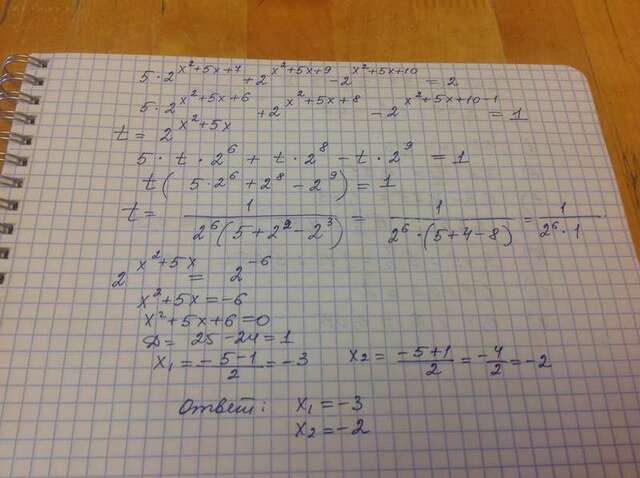 5 · 2^(x²+5x+7) + 2^(x²+5x+9) − 2^(x²+5x+10) = 2
5 · 2^(x²+5x+6) + 2^(x²+5x+8) − 2^(x²+5x+10−1) = 1
t = 2^(x²+5x)
5 · t · 2⁶ + t · 2⁸ − t · 2⁹ = 1
t ( 5 · 2⁶ + 2⁸ − 2⁹ ) = 1
t = 1 / (2⁶ (5 + 2² − 2³)) = 1 / (2⁶ · (5 + 4 − 8)) = 1 / (2⁶ · 1)
2^(x²+5x) = 2⁻⁶
x² + 5x = −6
x² + 5x + 6 = 0
D = 25 − 24 = 1
x₁ = (−5−1) / 2 = −3 x₂ = (−5+1) / 2 = −4 / 2 = −2
Ответ: x₁ = −3
x₂ = −2